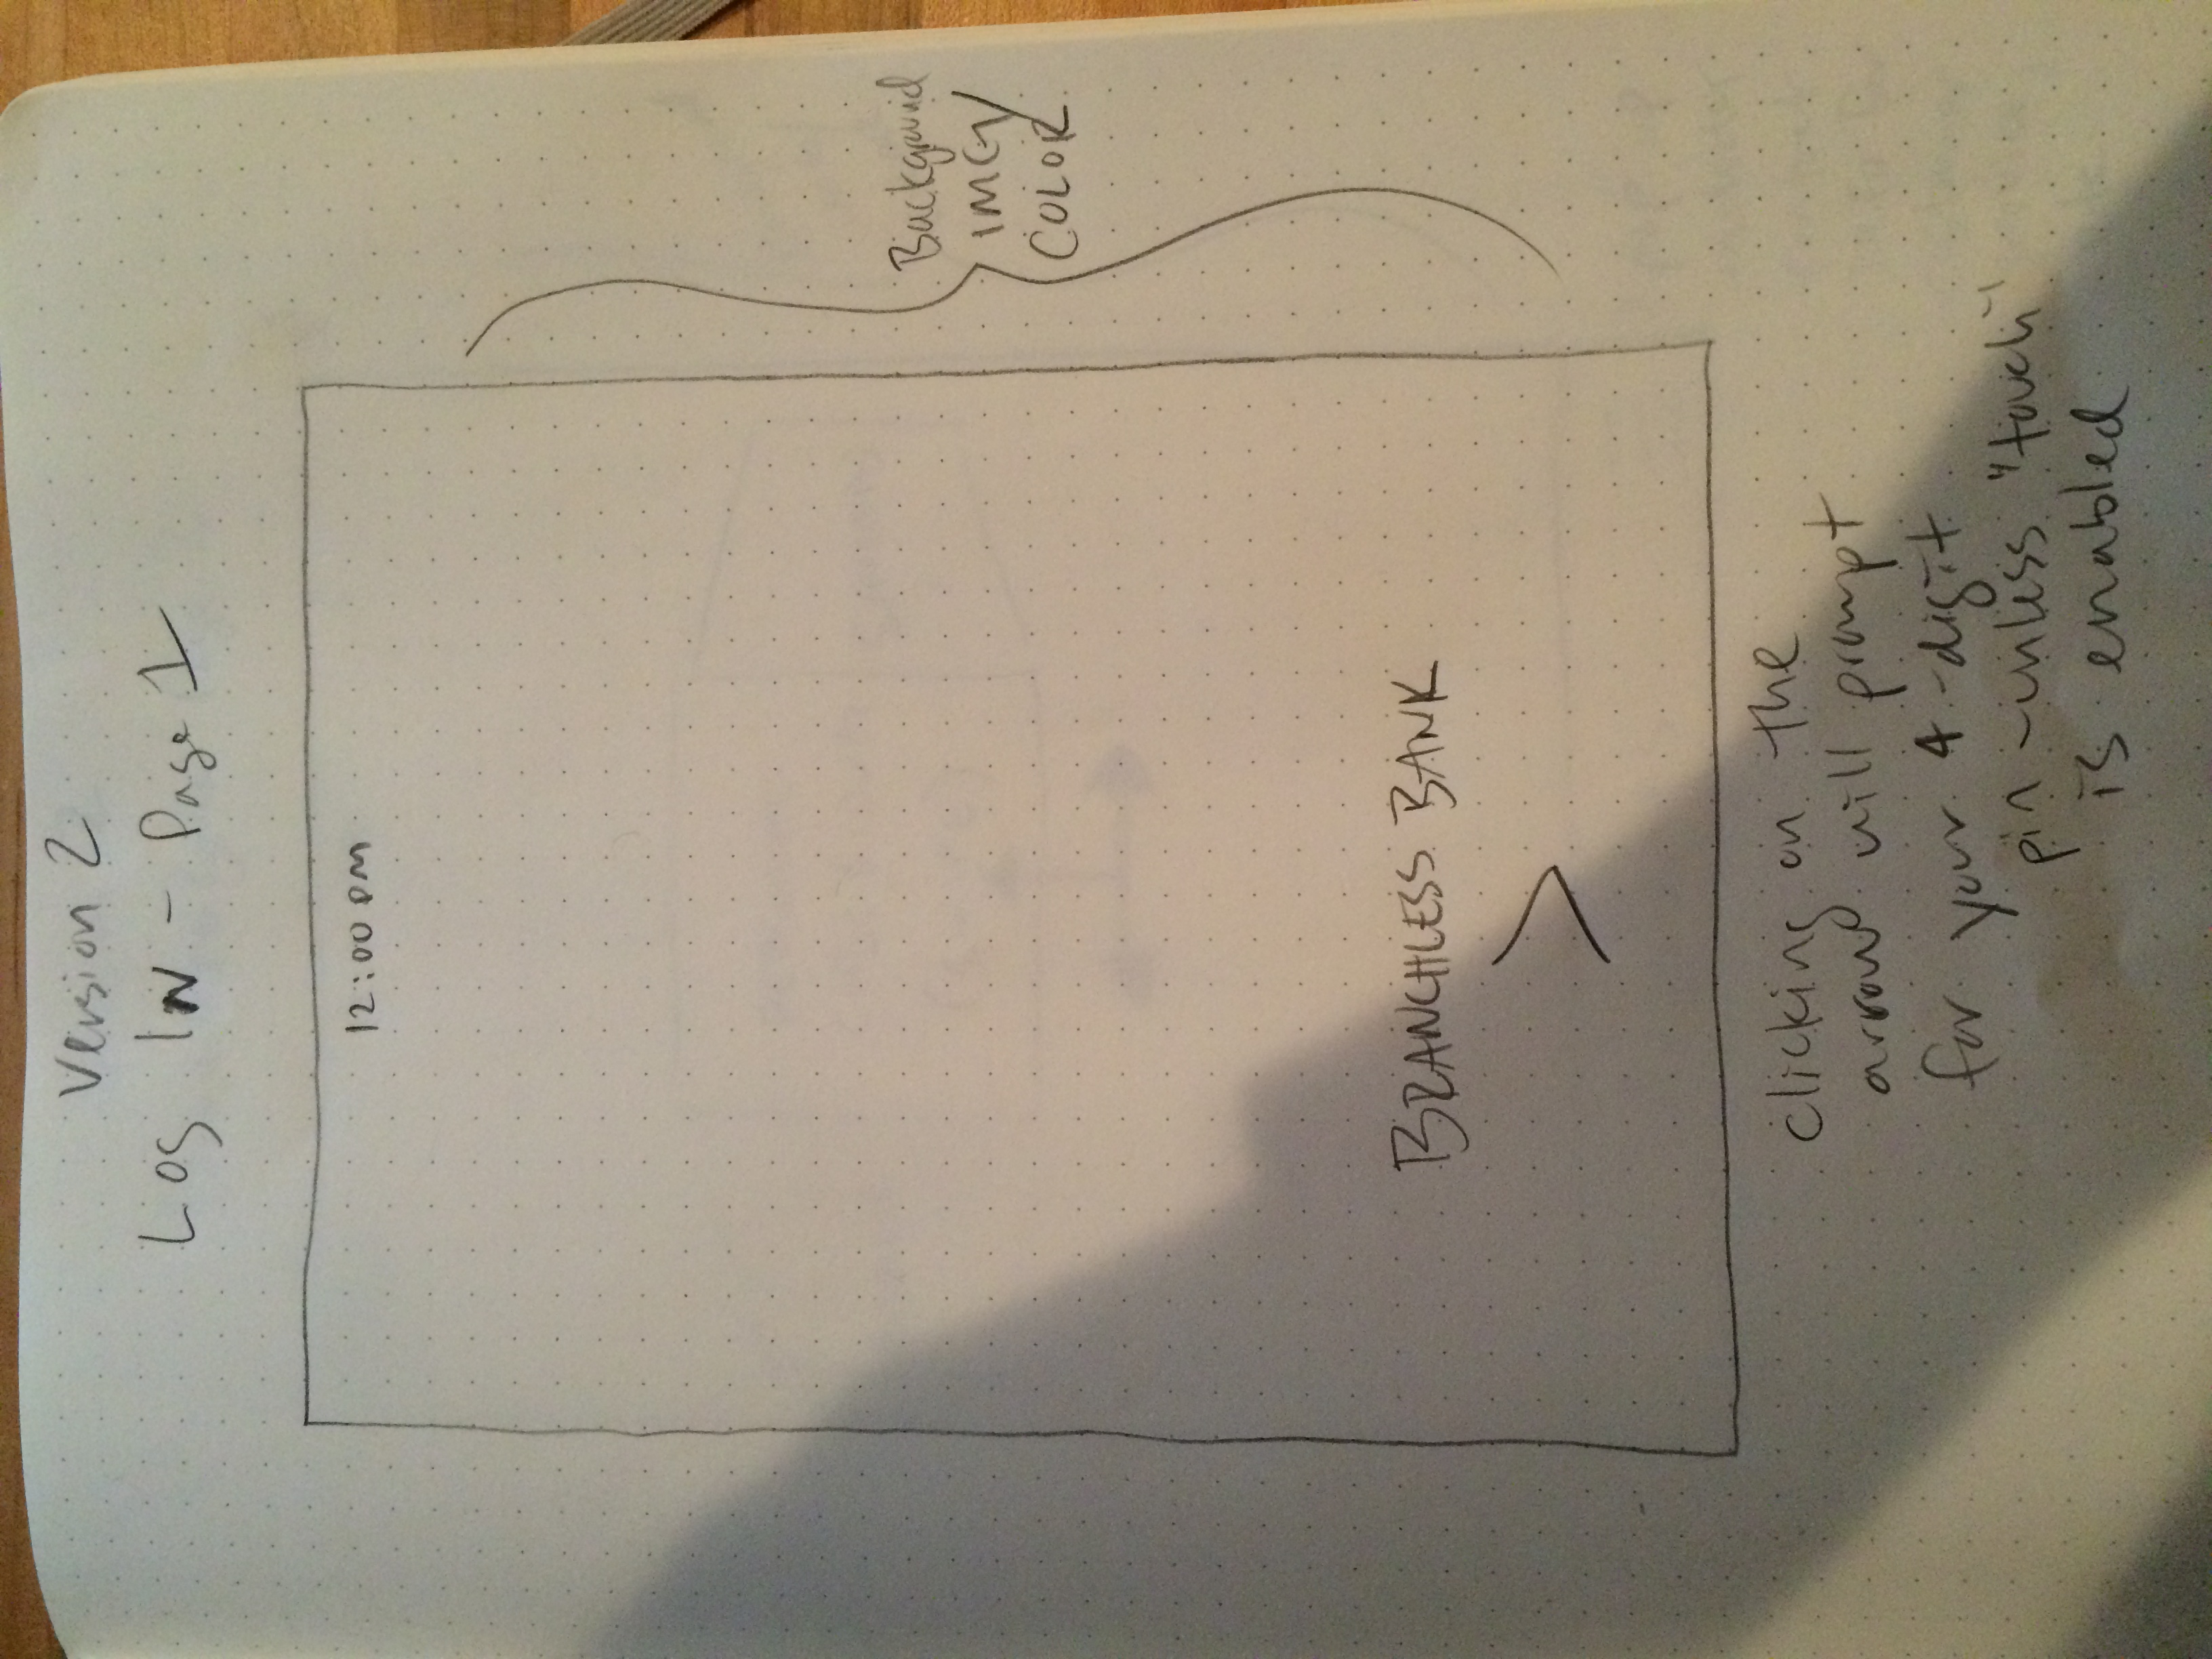 Version 2
Log IN - Page 1
12:00 PM
Background
IMG/
COLOR
BRANCHLESS BANK
>
clicking on the
arrow will prompt
for your 4-digit
pin -unless "touch"
is enabled